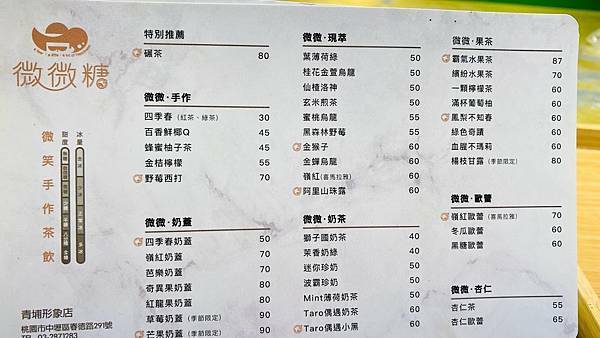 微微糖
微笑手作茶飲
甜度
冰量
青埔形象店
桃園市中壢區春德路291號
TEL 03-2871283
特別推薦
碾茶 80
微微·手作
四季春（紅茶、綠茶） 30
百香鮮椰Q 45
蜂蜜柚子茶 45
金桔檸檬 55
野莓西打 70
微微·奶蓋
四季春奶蓋 50
嶺紅奶蓋 70
芭樂奶蓋 70
奇異果奶蓋 80
紅龍果奶蓋 80
草莓奶蓋（季節限定） 90
芒果奶蓋（季節限定） 90
微微·現萃
葉薄荷綠 50
桂花金萱烏龍 50
仙楂洛神 50
玄米煎茶 50
蜜桃烏龍 55
黑森林野莓 55
金猴子 60
金蟬烏龍 60
嶺紅（喜馬拉雅） 60
阿里山珠露 60
微微·奶茶
獅子國奶茶 40
茉香奶綠 40
迷你珍奶 50
波霸珍奶 50
Mint薄荷奶茶 60
Taro偶遇奶茶 60
Taro偶遇小黑 60
微微·果茶
霸氣水果茶 87
繽紛水果茶 70
一顆檸檬茶 60
滿杯葡萄柚 60
鳳梨不知春 60
綠色奇蹟 60
血腥不瑪莉 60
楊枝甘露（季節限定） 80
微微·歐蕾
嶺紅歐蕾（喜馬拉雅） 70
冬瓜歐蕾 60
黑糖歐蕾 60
微微·杏仁
杏仁茶 55
杏仁歐蕾 65